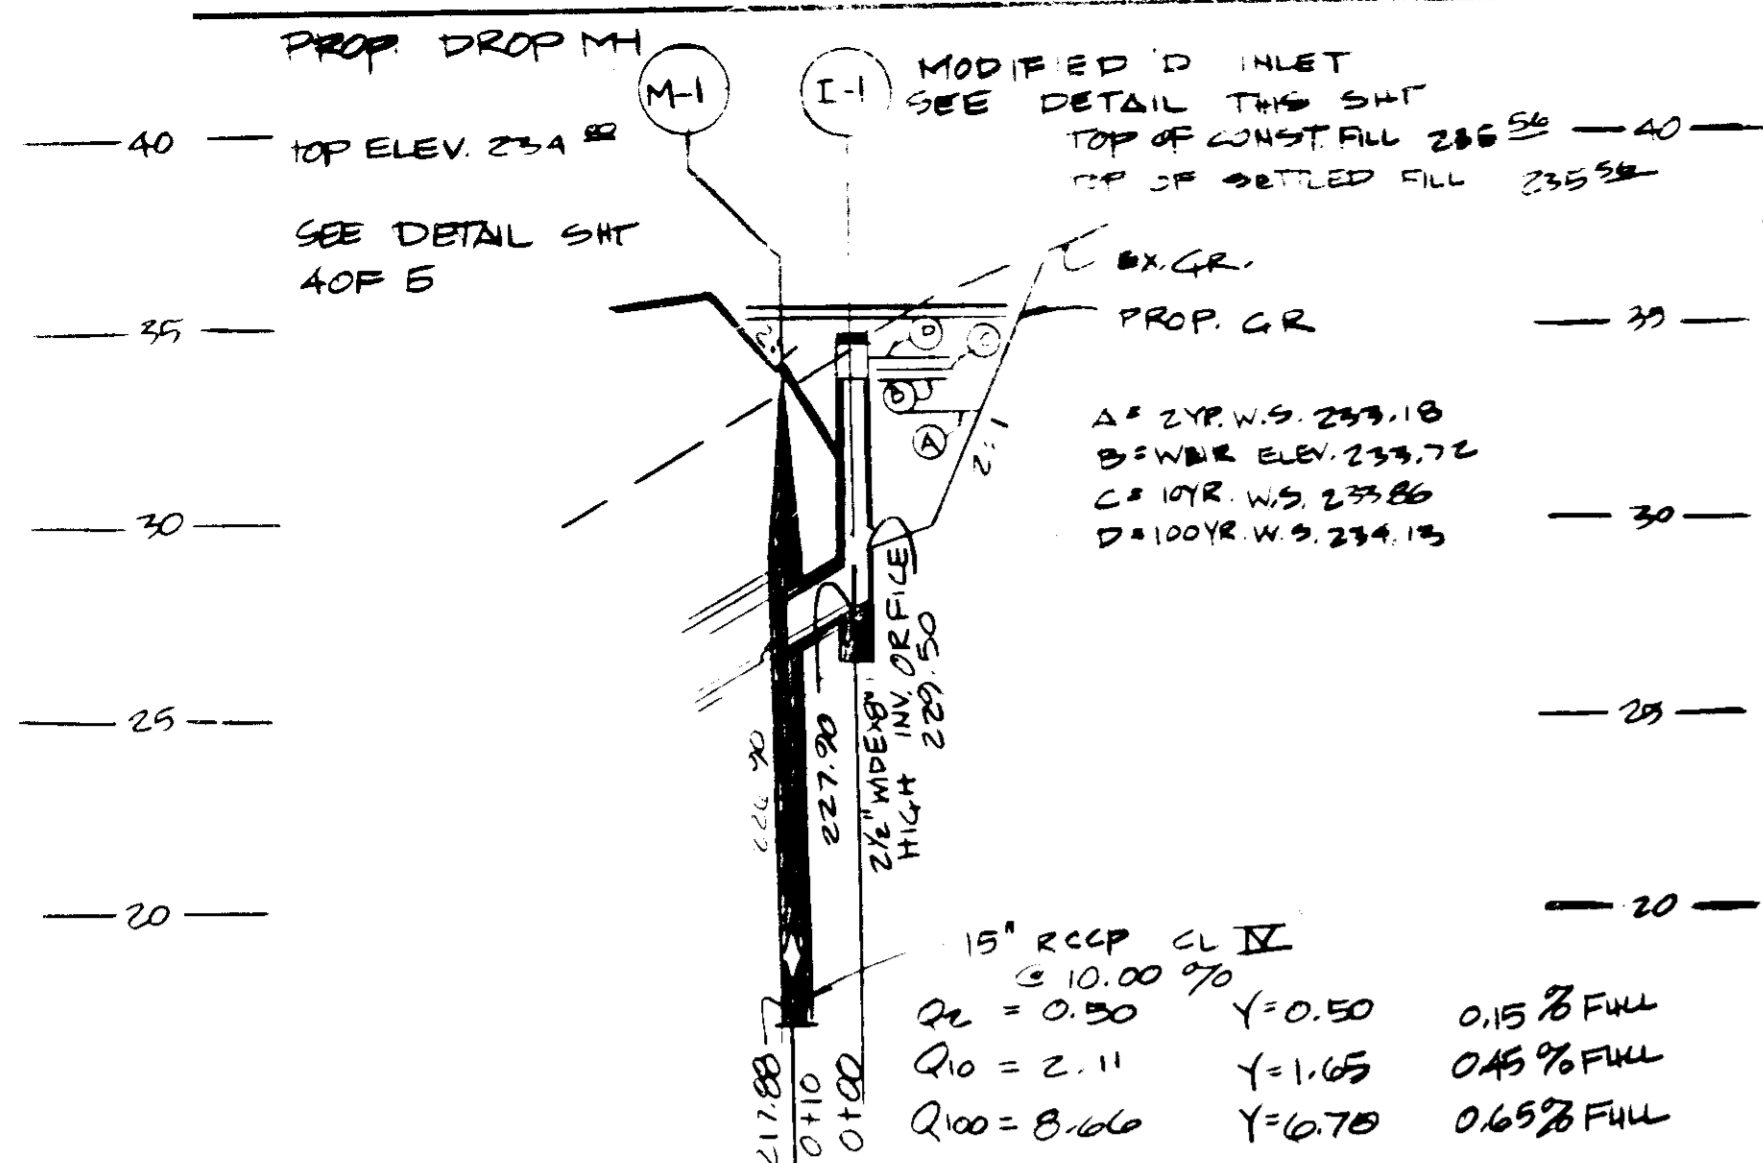 PROP. DROP MH
M-1
I-1
MODIFIED 'D' INLET
SEE DETAIL THIS SHT
40
TOP ELEV. 234
TOP OF CONST. FILL 56
40
TOP OF SETTLED FILL 235 56
SEE DETAIL SHT
4 OF 5
EX. GR.
35
PROP. GR
35
D
C
B
A
2:1
A = 2 YR. W.S. 233.18
B = WEIR ELEV. 233.72
C = 10 YR. W.S. 233.86
D = 100 YR. W.S. 234.13
30
30
25
25
226.90
227.90
2½" WIDE X 8"
HIGH INV. ORFICE
229.50
20
20
15" RCCP CL IV
@ 10.00 %
Q2 = 0.50 Y=0.50 0.15 % FULL
Q10 = 2.11 Y=1.65 0.45 % FULL
Q100 = 8.66 Y=6.70 0.65 % FULL
217.88
0+10
0+00